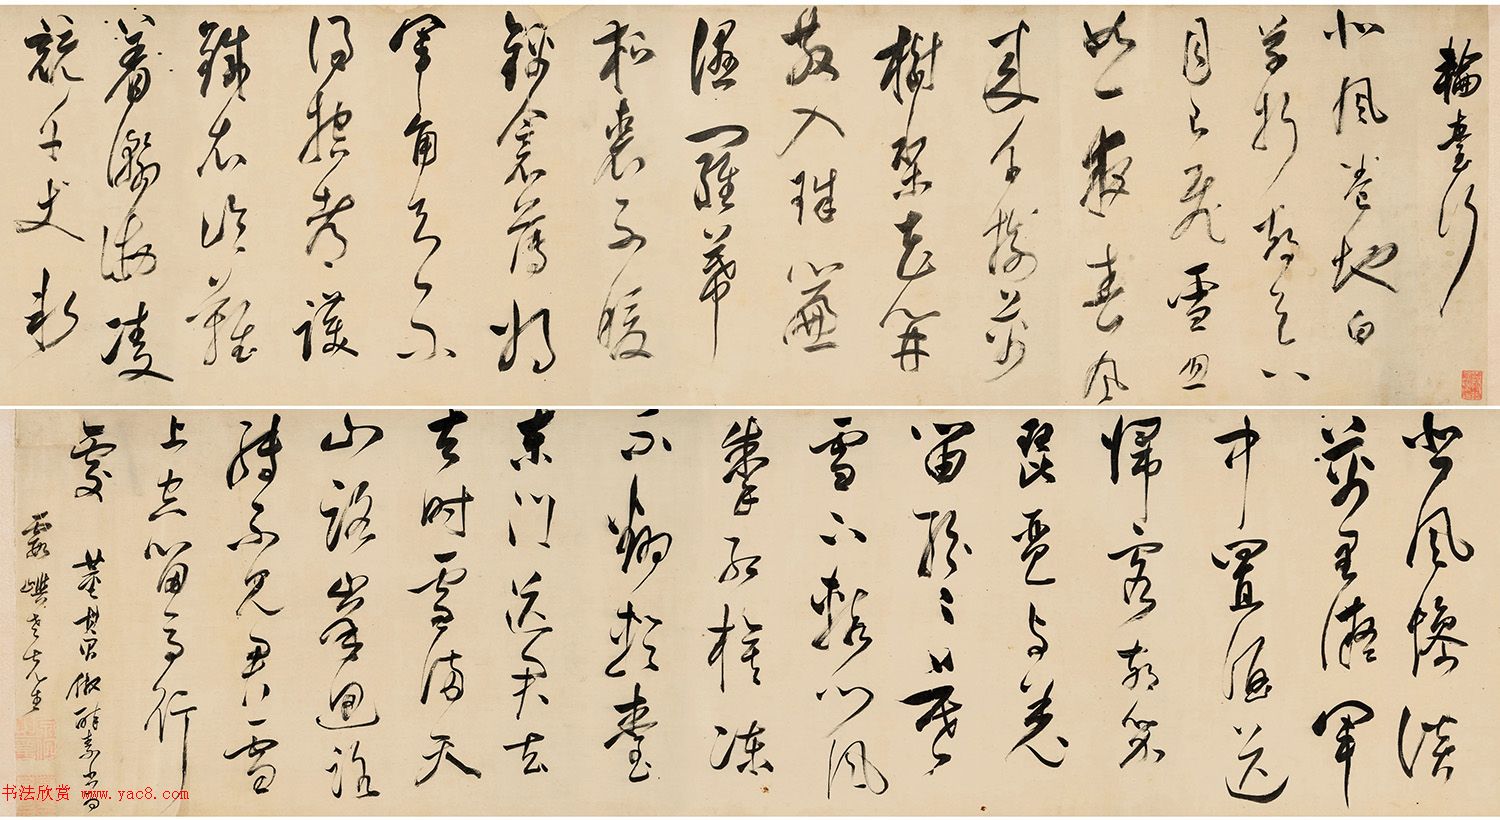 輪臺行
北風卷地白
草折胡天八
月已飛雪忽
如一夜春風
來千樹萬
樹梨花開
散入珠簾
濕羅幕
狐裘不煖
錦衾薄將
軍角弓不
得控都護
鐵衣冷難
着瀚海凌
兢千丈
悲風慘淡
萬里凝軍
中置酒送
歸客胡琴
琵琶與羌
笛紛紛暮
雪下轅門風
掣紅旗凍
不翻輪臺
東門送君去
去時雪滿天
山路山迴路
轉不見君雪
上空留馬行
處 董其昌倣醉素書為
霞嶼老先生
书法欣赏 www.yac8.com